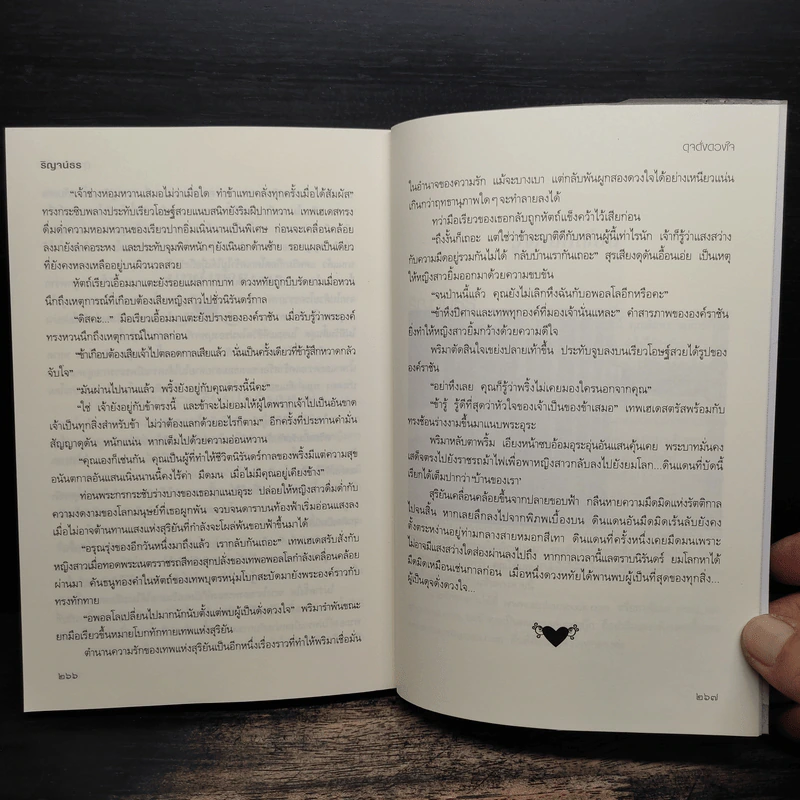 ริญจน์ธร
"เจ้าช่างหอมหวานเสมอไม่ว่าเมื่อใด ทำข้าแทบคลั่งทุกครั้งเมื่อได้สัมผัส"
ทรงกระซิบพลางประทับเรียวโอษฐ์สวยแนบสนิทยังริมฝีปากหวาน เทพเฮเดสทรง
ดื่มด่ำความหอมหวานของเรียวปากอิ่มเนิ่นนานเป็นพิเศษ ก่อนจะเคลื่อนคล้อย
ลงมายังลำคอระหง และประทับจุมพิตหนักๆ ยังเนินอกด้านซ้าย รอยแผลเป็นเดียว
ที่ยังคงหลงเหลืออยู่บนผิวนวลสวย
หัตถ์เรียวเอื้อมมาแตะยังรอยแผลกากบาท ดวงหทัยถูกบีบรัดยามเมื่อหวน
นึกถึงเหตุการณ์ที่เกือบต้องเสียหญิงสาวไปชั่วนิรันดร์กาล
"ดิสคะ..." มือเรียวเอื้อมมาแตะยังปรางขององค์ราชัน เมื่อรับรู้ว่าพระองค์
ทรงหวนนึกถึงเหตุการณ์ในกาลก่อน
"ข้าเกือบต้องเสียเจ้าไปตลอดกาลเสียแล้ว นั่นเป็นครั้งเดียวที่ข้ารู้สึกหวาดกลัว
จับใจ"
"มันผ่านไปนานแล้ว พริ้งยังอยู่กับคุณตรงนี้นี่คะ"
"ใช่ เจ้ายังอยู่กับข้าตรงนี้ และข้าจะไม่ยอมให้ผู้ใดพรากเจ้าไปเป็นอันขาด
เจ้าเป็นทุกสิ่งสำหรับข้า ไม่ว่าต้องแลกด้วยอะไรก็ตาม" อีกครั้งที่ประทานคำมั่น
สัญญาดุดัน หนักแน่น หากเต็มไปด้วยความอ่อนหวาน
"คุณเองก็เช่นกัน คุณเป็นผู้ที่ทำให้ชีวิตนิรันดร์กาลของพริ้งมีแต่ความสุข
อนันตกาลอันแสนเนิ่นนานนี้คงไร้ค่า มืดมน เมื่อไม่มีคุณอยู่เคียงข้าง"
ท่อนพระกรกระชับร่างบางของเธอมาแนบอุระ ปล่อยให้หญิงสาวดื่มด่ำกับ
ความงดงามของโลกมนุษย์ที่เธอผูกพัน จวบจนดาราบนท้องฟ้าเริ่มอ่อนแสงลง
เมื่อไม่อาจต้านทานแสงแห่งสุริยันที่กำลังจะโผล่พ้นขอบฟ้าขึ้นมาได้
"อรุณรุ่งของอีกวันหนึ่งมาถึงแล้ว เรากลับกันเถอะ" เทพเฮเดสรับสั่งกับ
หญิงสาวเมื่อทอดพระเนตรราชรถสีทองสุกปลั่งของเทพอพอลโลกำลังเคลื่อนคล้อย
ผ่านมา คันธนูทองคำในหัตถ์ของเทพบุตรหนุ่มโบกสะบัดมายังพระองค์ราวกับ
ทรงทักทาย
"อพอลโลเปลี่ยนไปมากนักนับตั้งแต่พบผู้เป็นดั่งดวงใจ" พริมารำพันขณะ
ยกมือเรียวขึ้นหมายโบกทักทายเทพแห่งสุริยัน
ตำนานความรักของเทพแห่งสุริยันเป็นอีกหนึ่งเรื่องราวที่ทำให้พริมาเชื่อมั่น
๒๖๖
ดุจดั่งดวงใจ
ในอำนาจของความรัก แม้จะบางเบา แต่กลับพันผูกสองดวงใจได้อย่างเหนียวแน่น
เกินกว่าฤทธานุภาพใดๆ จะทำลายลงได้
ทว่ามือเรียวของเธอกลับถูกหัตถ์แข็งคว้าไว้เสียก่อน
"ถึงงั้นก็เถอะ แต่ใช่ว่าข้าจะญาติดีกับหลานผู้นี้เท่าไรนัก เจ้าก็รู้ว่าแสงสว่าง
กับความมืดอยู่ร่วมกันไม่ได้ กลับบ้านเรากันเถอะ" สุรเสียงดุดันเอื้อนเอ่ย เป็นเหตุ
ให้หญิงสาวยิ้มออกมาด้วยความขบขัน
"จนป่านนี้แล้ว คุณยังไม่เลิกหึงฉันกับอพอลโลอีกหรือคะ"
"ข้าหึงปีศาจและเทพทุกองค์ที่มองเจ้านั่นแหละ" คำสารภาพขององค์ราชัน
ยิ่งทำให้หญิงสาวยิ้มกว้างด้วยความดีใจ
พริมาตัดสินใจเขย่งปลายเท้าขึ้น ประทับจูบลงบนเรียวโอษฐ์สวยได้รูปของ
องค์ราชัน
"อย่าหึงเลย คุณก็รู้ว่าพริ้งไม่เคยมองใครนอกจากคุณ"
"ข้ารู้ รู้ดีที่สุดว่าหัวใจของเจ้าเป็นของข้าเสมอ" เทพเฮเดสตรัสพร้อมกับ
ทรงช้อนร่างงามขึ้นมาแนบพระอุระ
พริมาหลับตาพริ้ม เอียงหน้าซบอ้อมอุระอุ่นอันแสนคุ้นเคย พระบาทมั่นคง
เสด็จตรงไปยังราชรถม้าไฟเพื่อพาหญิงสาวกลับลงไปยังยมโลก...ดินแดนที่บัดนี้
เรียกได้เต็มปากว่า 'บ้านของเรา'
สุริยันเคลื่อนคล้อยขึ้นจากปลายขอบฟ้า กลืนหายความมืดมิดแห่งรัตติกาล
ไปจนสิ้น หากเลยลึกลงไปจากพิภพเบื้องบน ดินแดนอันมืดมิดเร้นลับยังคง
ตั้งตระหง่านอยู่ท่ามกลางสายหมอกสีเทา ดินแดนที่ครั้งหนึ่งเคยมืดมนเพราะ
ไม่อาจมีแสงสว่างใดส่องผ่านลงไปถึง หากกาลเวลานี้แลตราบนิรันดร์ ยมโลกหาได้
มืดมิดเหมือนเช่นกาลก่อน เมื่อหนึ่งดวงหทัยได้พานพบผู้เป็นที่สุดของทุกสิ่ง...
ผู้เป็นดุจดั่งดวงใจ...
๒๖๗